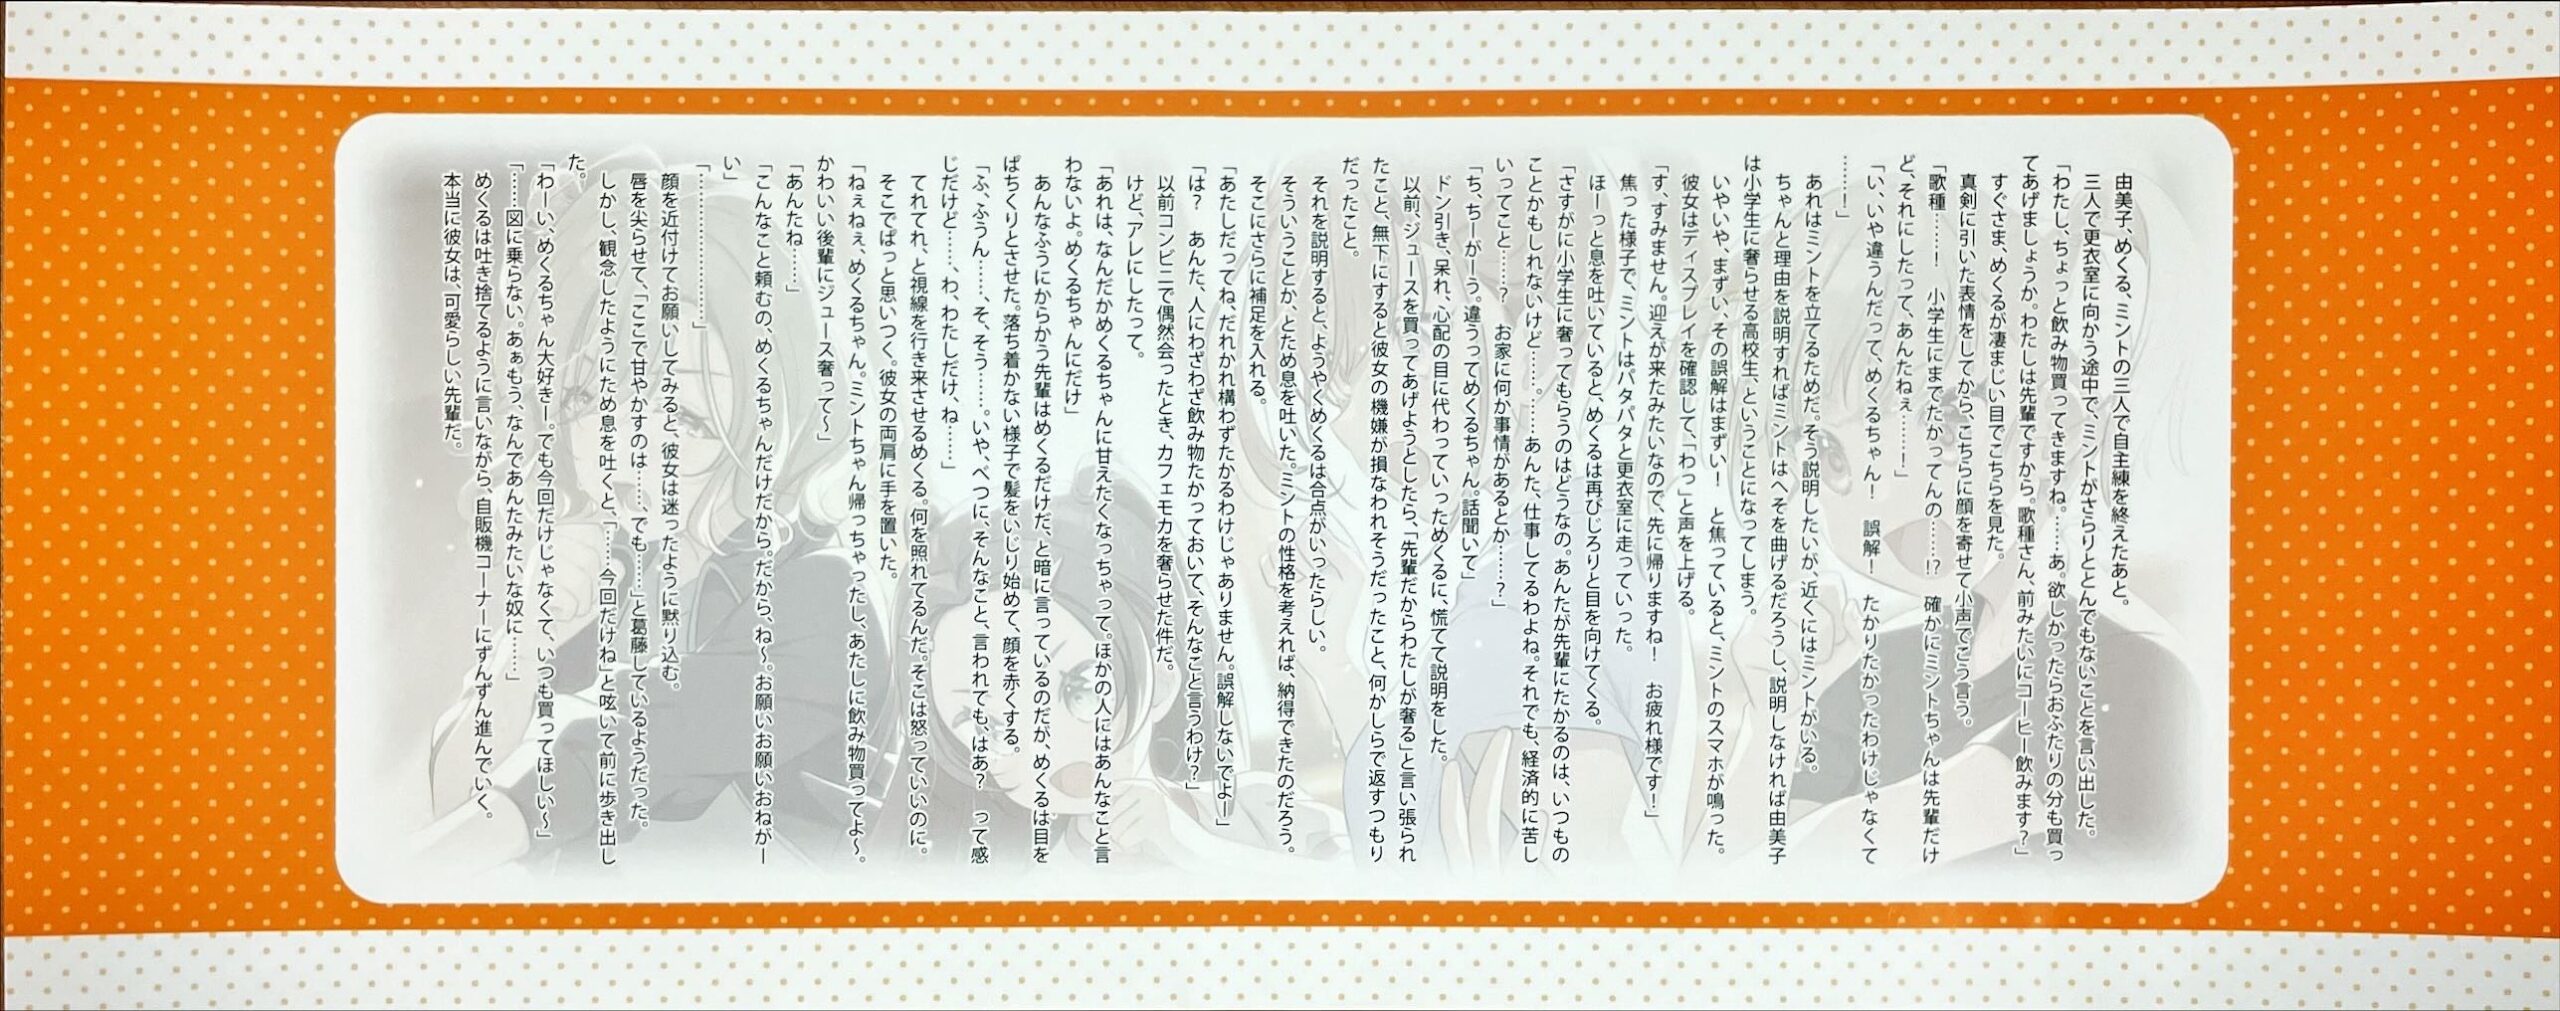 由美子、めくる、ミントの三人で自主練を終えたあと。
三人で更衣室に向かう途中で、ミントがさらりととんでもないことを言い出した。
「わたし、ちょっと飲み物買ってきますね。……あ。欲しかったらおふたりの分も買っ
てあげましょうか。わたしは先輩ですから。歌種さん、前みたいにコーヒー飲みます？」
すぐさま、めくるが凄まじい目でこちらを見た。
真剣に引いた表情をしてから、こちらに顔を寄せて小声でこう言う。
「歌種……！　小学生にまでたかってんの……!?　確かにミントちゃんは先輩だけ
ど、それにしたって、あんたねぇ……！」
「い、いや違うんだって、めくるちゃん！　誤解！　たかりたかったわけじゃなくて
……！」
あれはミントを立てるためだ。そう説明したいが、近くにはミントがいる。
ちゃんと理由を説明すればミントはへそを曲げるだろうし、説明しなければ由美子
は小学生に奢らせる高校生、ということになってしまう。
いやいや、まずい、その誤解はまずい！　と焦っていると、ミントのスマホが鳴った。
彼女はディスプレイを確認して、「わっ」と声を上げる。
「す、すみません。迎えが来たみたいなので、先に帰りますね！　お疲れ様です！」
焦った様子で、ミントはパタパタと更衣室に走っていった。
ほーっと息を吐いていると、めくるは再びじろりと目を向けてくる。
「さすがに小学生に奢ってもらうのはどうなの。あんたが先輩にたかるのは、いつもの
ことかもしれないけど……。……あんた、仕事してるわよね。それでも、経済的に苦し
いってこと……？　お家に何か事情があるとか……？」
「ち、ちーがーう。違うってめくるちゃん。話聞いて」
ドン引き、呆れ、心配の目に代わっていっためくるに、慌てて説明をした。
以前、ジュースを買ってあげようとしたら、「先輩だからわたしが奢る」と言い張られ
たこと、無下にすると彼女の機嫌が損なわれそうだったこと、何かしらで返すつもり
だったこと。
それを説明すると、ようやくめくるは合点がいったらしい。
そういうことか、とため息を吐いた。ミントの性格を考えれば、納得できたのだろう。
そこにさらに補足を入れる。
「あたしだってね、だれかれ構わずたかるわけじゃありません。誤解しないでよー」
「は？　あんた、人にわざわざ飲み物たかっておいて、そんなこと言うわけ？」
以前コンビニで偶然会ったとき、カフェモカを奢らせた件だ。
けど、アレにしたって。
「あれは、なんだかめくるちゃんに甘えたくなっちゃって。ほかの人にはあんなこと言
わないよ。めくるちゃんにだけ」
あんなふうにからかう先輩はめくるだけだ、と暗に言っているのだが、めくるは目を
ぱちくりとさせた。落ち着かない様子で髪をいじり始めて、顔を赤くする。
「ふ、ふうん……、そ、そう……。いや、べつに、そんなこと、言われても、はあ？　って感
じだけど……、わ、わたしだけ、ね……」
てれてれ、と視線を行き来させるめくる。何を照れてるんだ。そこは怒っていいのに。
そこでぱっと思いつく。彼女の両肩に手を置いた。
「ねぇねぇ、めくるちゃん。ミントちゃん帰っちゃったし、あたしに飲み物買ってよ〜。
かわいい後輩にジュース奢って〜」
「あんたね……」
「こんなこと頼むの、めくるちゃんだけだから。だから、ね〜。お願いお願いおねがー
い」
「…………………」
顔を近付けてお願いしてみると、彼女は迷ったように黙り込む。
唇を尖らせて、「ここで甘やかすのは……、でも……」と葛藤しているようだった。
しかし、観念したようにため息を吐くと、「……今回だけね」と呟いて前に歩き出し
た。
「わーい、めくるちゃん大好きー。でも今回だけじゃなくて、いつも買ってほしい〜」
「……図に乗らない。あぁもう、なんであんたみたいな奴に……」
めくるは吐き捨てるように言いながら、自販機コーナーにずんずん進んでいく。
本当に彼女は、可愛らしい先輩だ。